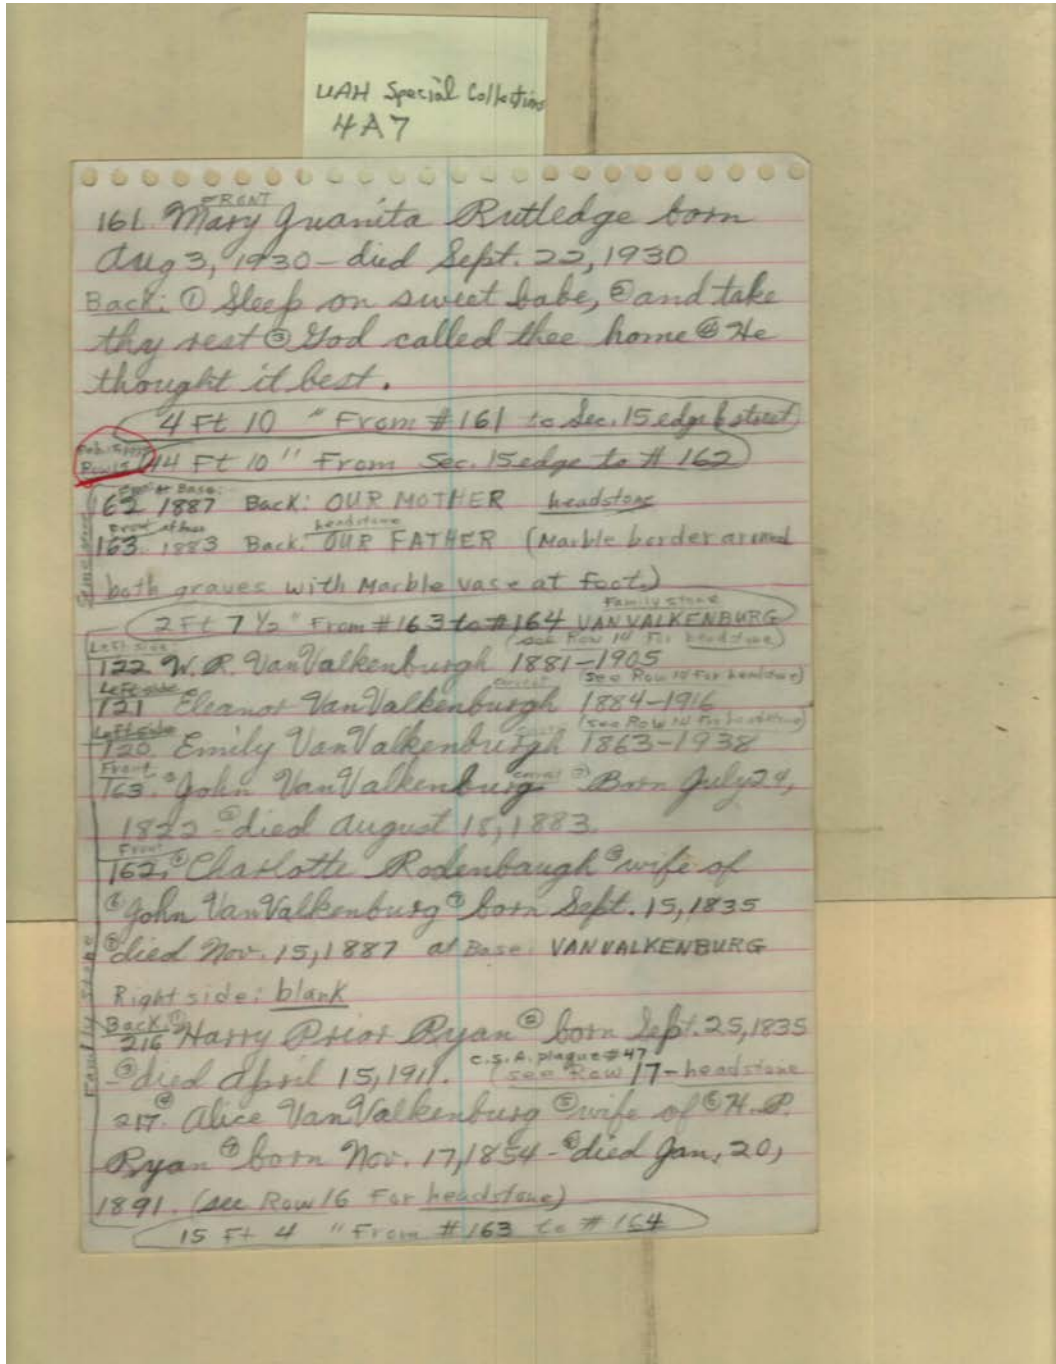 UAH Special Collections
4A7
FRONT
161. Mary Juanita Rutledge born
Aug 3, 1930 – died Sept. 22, 1930
Back: ① Sleep on sweet babe, ② and take
thy rest ③ God called thee home ④ He
thought it best.
4 Ft 10 " From #161 to Sec. 15 edge & street
Row 15
14 Ft 10" From Sec. 15 edge to # 162
Front at Base:
162 1887 Back: OUR MOTHER headstone
Front at base headstone
163. 1883 Back: OUR FATHER (Marble border around
both graves with Marble vase at foot.)
Family stone
2 Ft 7 ½ " From #163 to #164 VANVALKENBURG
Left side (see Row 14 For headstone)
122 W. R. VanValkenburgh 1881–1905
Left side (see Row 14 For headstone)
121 Eleanor VanValkenburgh 1884–1916
Left side (see Row 14 For headstone)
120 Emily VanValkenburgh 1863–1938
Front
163. ① John VanValkenburg ② Born July 24,
1822 – ③ died August 18, 1883.
Front
162. ④ Charlotte Rodenbaugh ⑤ wife of
⑥ John VanValkenburg ⑦ born Sept. 15, 1835
⑧ died Nov. 15, 1887 at Base: VANVALKENBURG
Family Stone
Right side: blank
Back: ①
216 Harry Prior Ryan ② born Sept. 25, 1835
– ③ died April 15, 1911. C.S.A. plaque #47
(see Row 17 – headstone
217. ④ Alice VanValkenburg ⑤ wife of ⑥ H. P.
Ryan ⑦ born Nov. 17, 1854 – ⑧ died Jan. 20,
1891. (see Row 16 For headstone)
15 Ft 4 " From #163 to #164